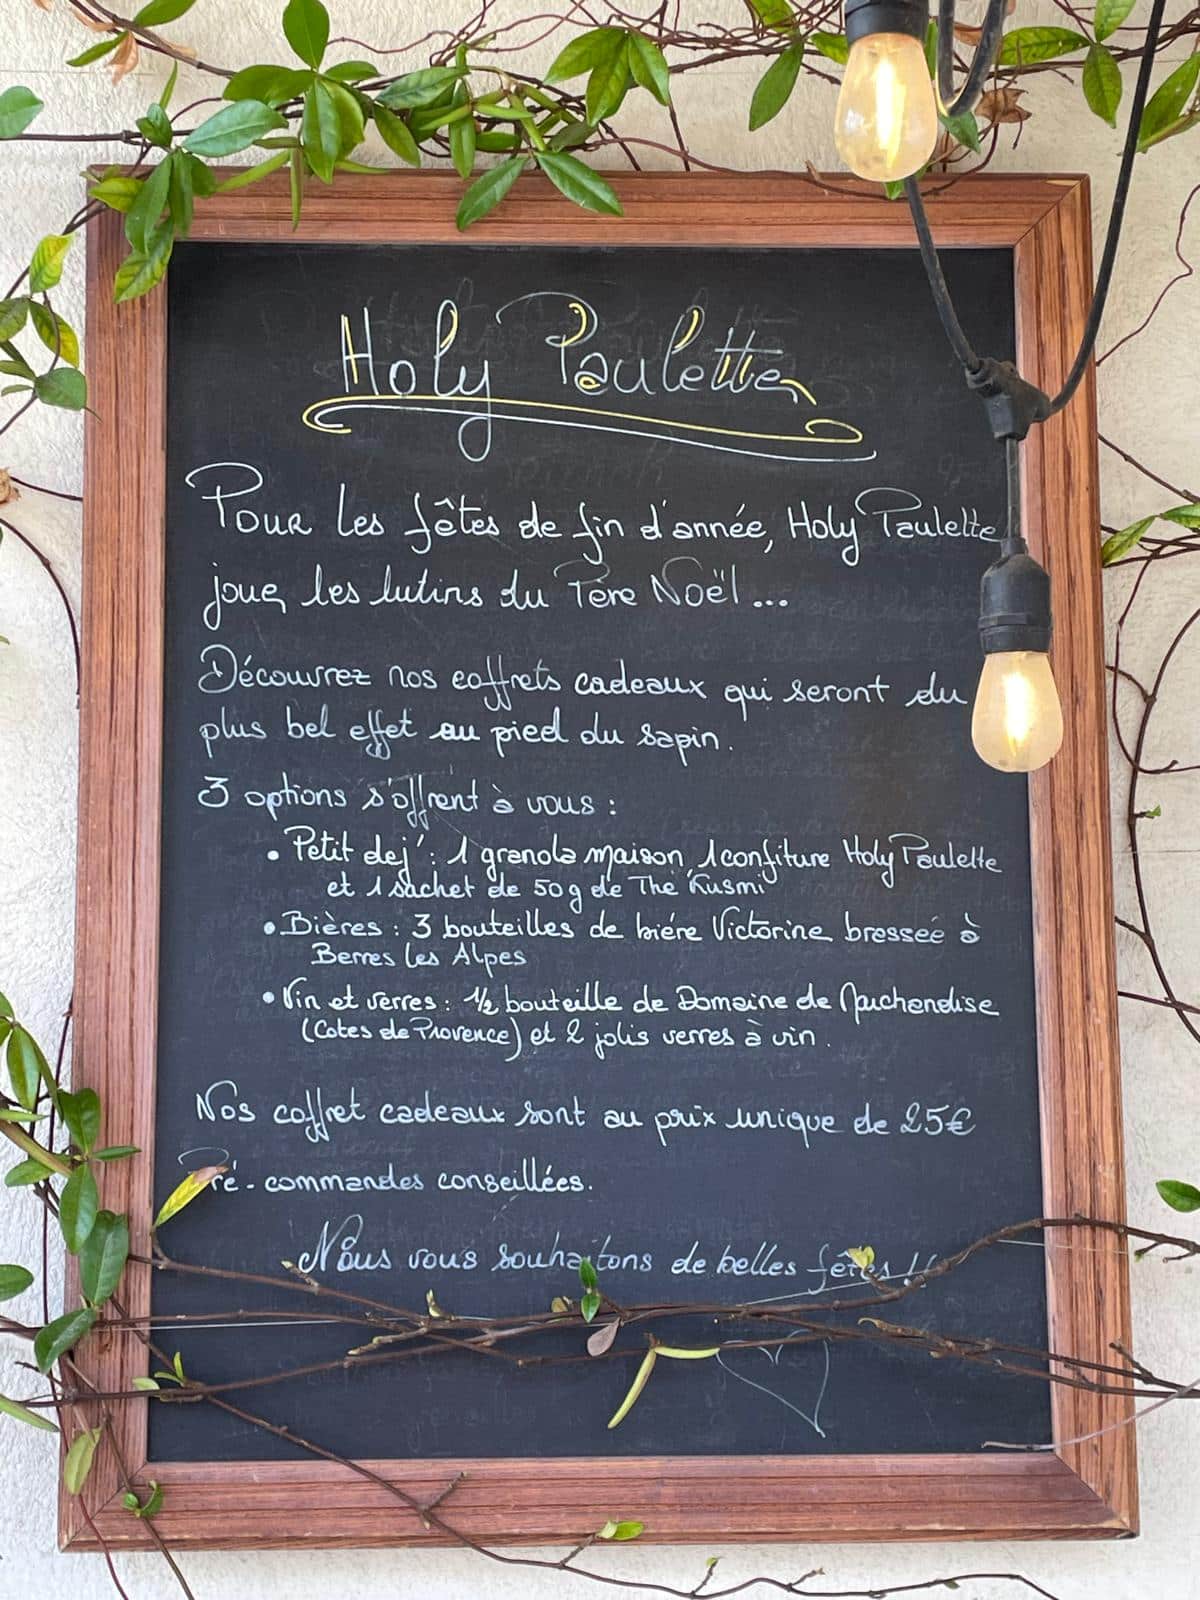 Holy Paulette
Pour les fêtes de fin d'année, Holy Paulette
joue les lutins du Père Noël...
Découvrez nos coffrets cadeaux qui seront du
plus bel effet au pied du sapin.
3 options s'offrent à vous :
• Petit dej' : 1 granola maison, 1 confiture Holy Paulette
et 1 sachet de 50g de Thé Kusmi
• Bières : 3 bouteilles de biére Victorine bressée à
Berres les Alpes
• Vin et verres : 1/2 bouteille de Domaine de Marchandise
(Cotes de Provence) et 2 jolis verres à vin.
Nos coffret cadeaux sont au prix unique de 25€
Pré-commandes conseillées.
Nous vous souhaitons de belles fêtes !!